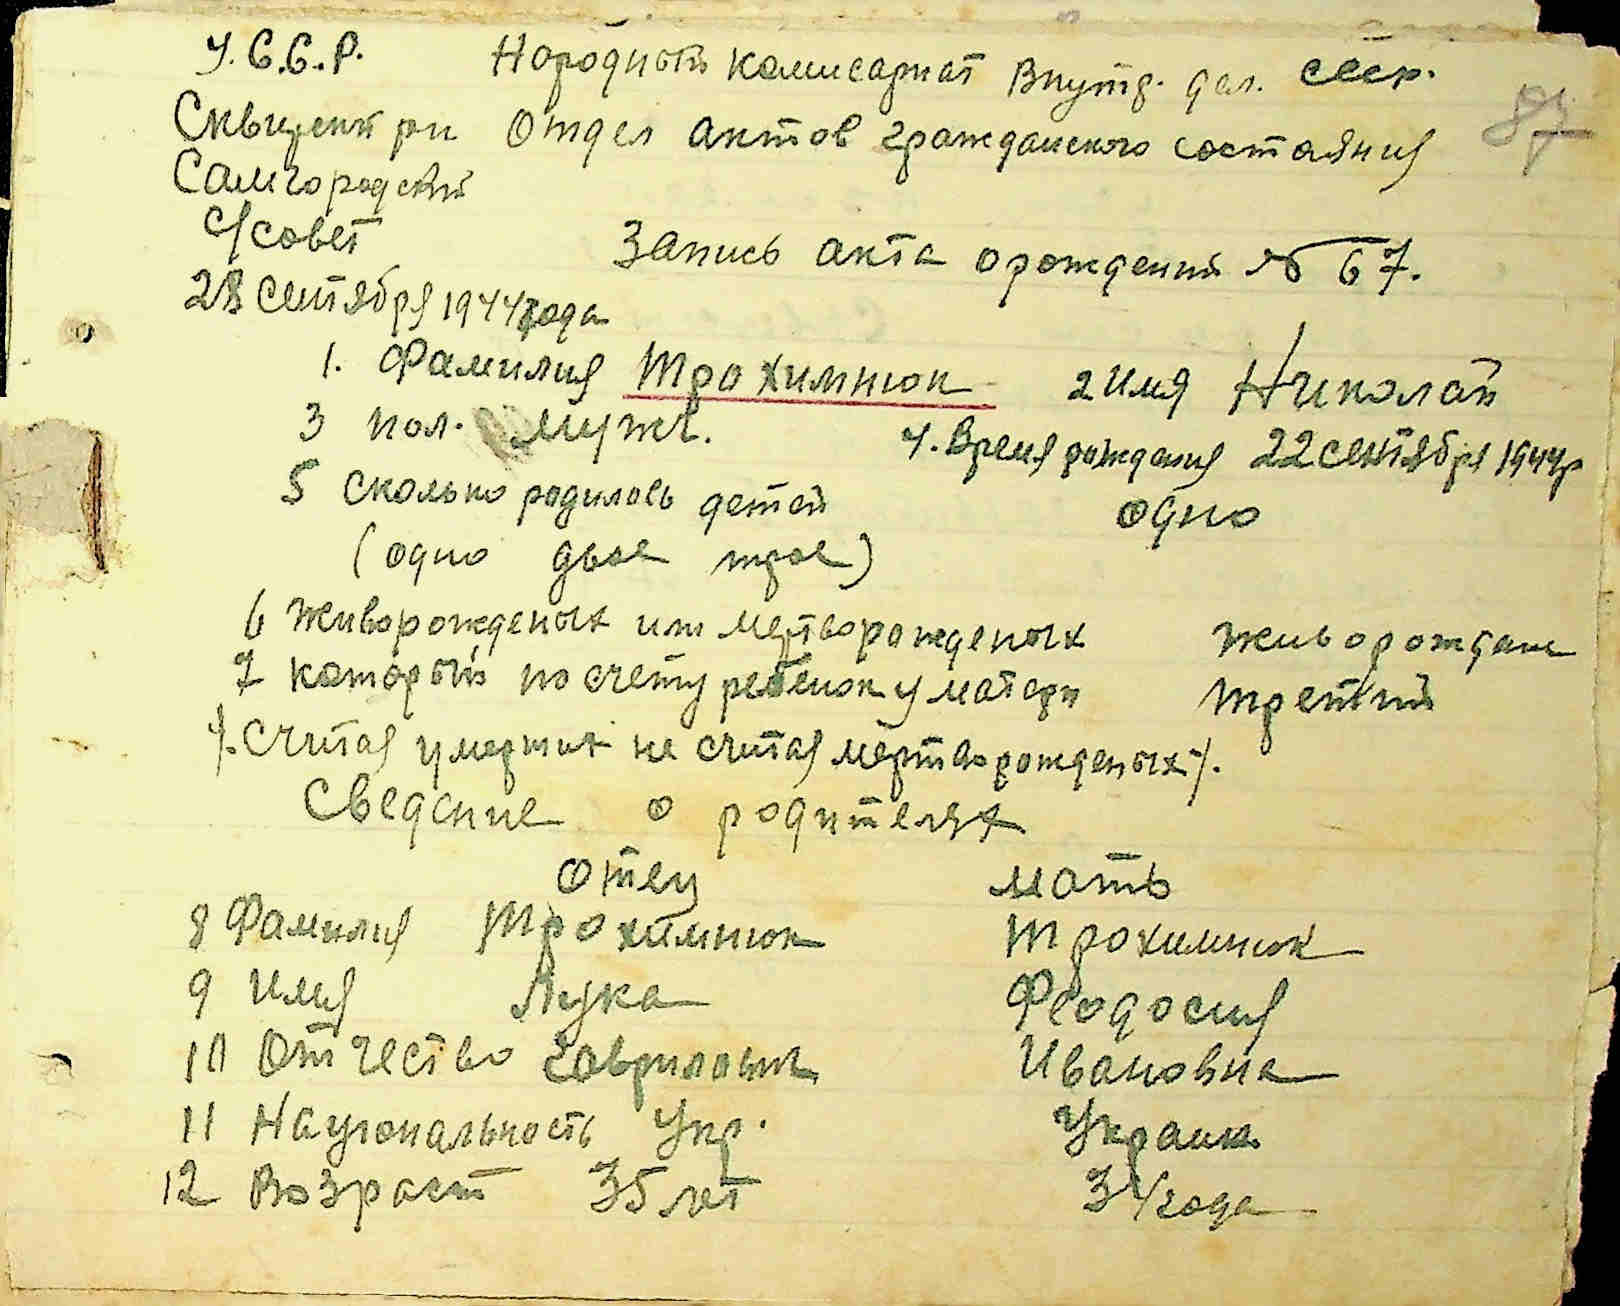 У.С.С.Р. Народный комисариат Внутр. дел. СССР.
Сквирский р-н Отдел актов гражданского состояния 87
Самгородский
с/совет Запись акта о рождении № 67.
28 сентября 1944 года
1. Фамилия Трохимнюк 2 Имя Николай
3 пол. Мужс. 4. Время рождения 22 сентября 1944 г
5 Сколько родилось детей одно
(одно двое трое)
6 Живорожденых или мертворожденых живорожден
7 который по счету ребенок у матери третий
/. Считая умерших не считая мертворожденых /.
Сведение о родителях
Отец Мать
8 Фамилия Трохимнюк Трохимнюк
9 Имя Лука Феодосия
10 Отчество Гаврилович Ивановна
11 Национальность Укр. Украин
12 Возраст 35 лет 34 года